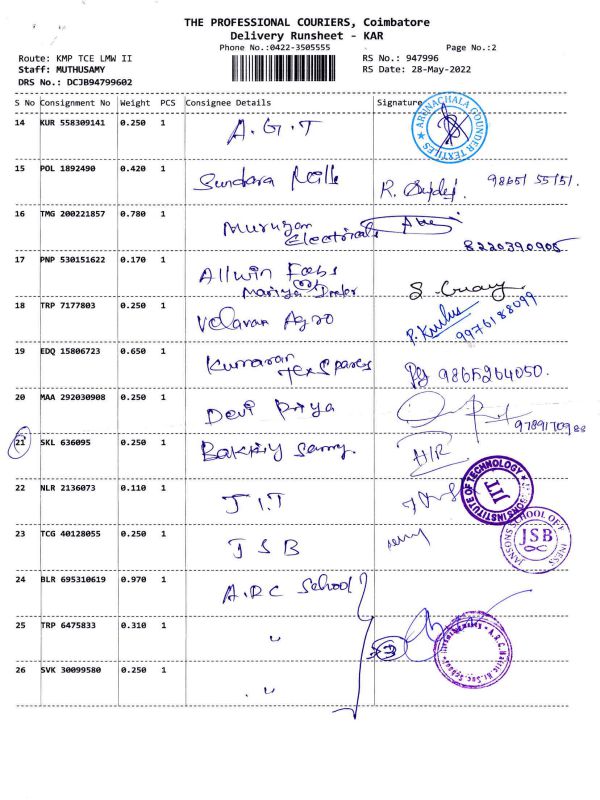 THE PROFESSIONAL COURIERS, Coimbatore
Delivery Runsheet - KAR
Phone No.:0422-3505555
Page No.:2
Route: KMP TCE LMW II
RS No.: 947996
Staff: MUTHUSAMY
RS Date: 28-May-2022
DRS No.: DCJB94799602
S No Consignment No Weight PCS Consignee Details Signature
14 KUR 558309141 0.250 1 A.G.T
ARUNACHALA GOUNDER TEXTILES
15 POL 1892490 0.420 1 Sundara Mills R. 98651 55151.
16 TMG 200221857 0.780 1 Murugan
Electricals
8220390905
17 PNP 530151622 0.170 1 Allwin Fabs
Mariya
S.
18 TRP 7177803 0.250 1 Velavan Agro P. 9976188099
19 EDQ 15806723 0.650 1 Kumaran
Tex Spares
9865264050.
20 MAA 292030908 0.250 1 Devi Priya
9789170988
21 SKL 636095 0.250 1 Bakkiy Samy.
22 NLR 2136073 0.110 1 J I.T
JANSONS INSTITUTE OF TECHNOLOGY
JIT
23 TCG 40128055 0.250 1 J S B
JANSONS SCHOOL OF
JSB
24 BLR 695310619 0.970 1 A.R.C School
25 TRP 6475833 0.310 1 "
A.R.C. Matric. Hr. Sec. School
26 SVK 30099580 0.250 1 "